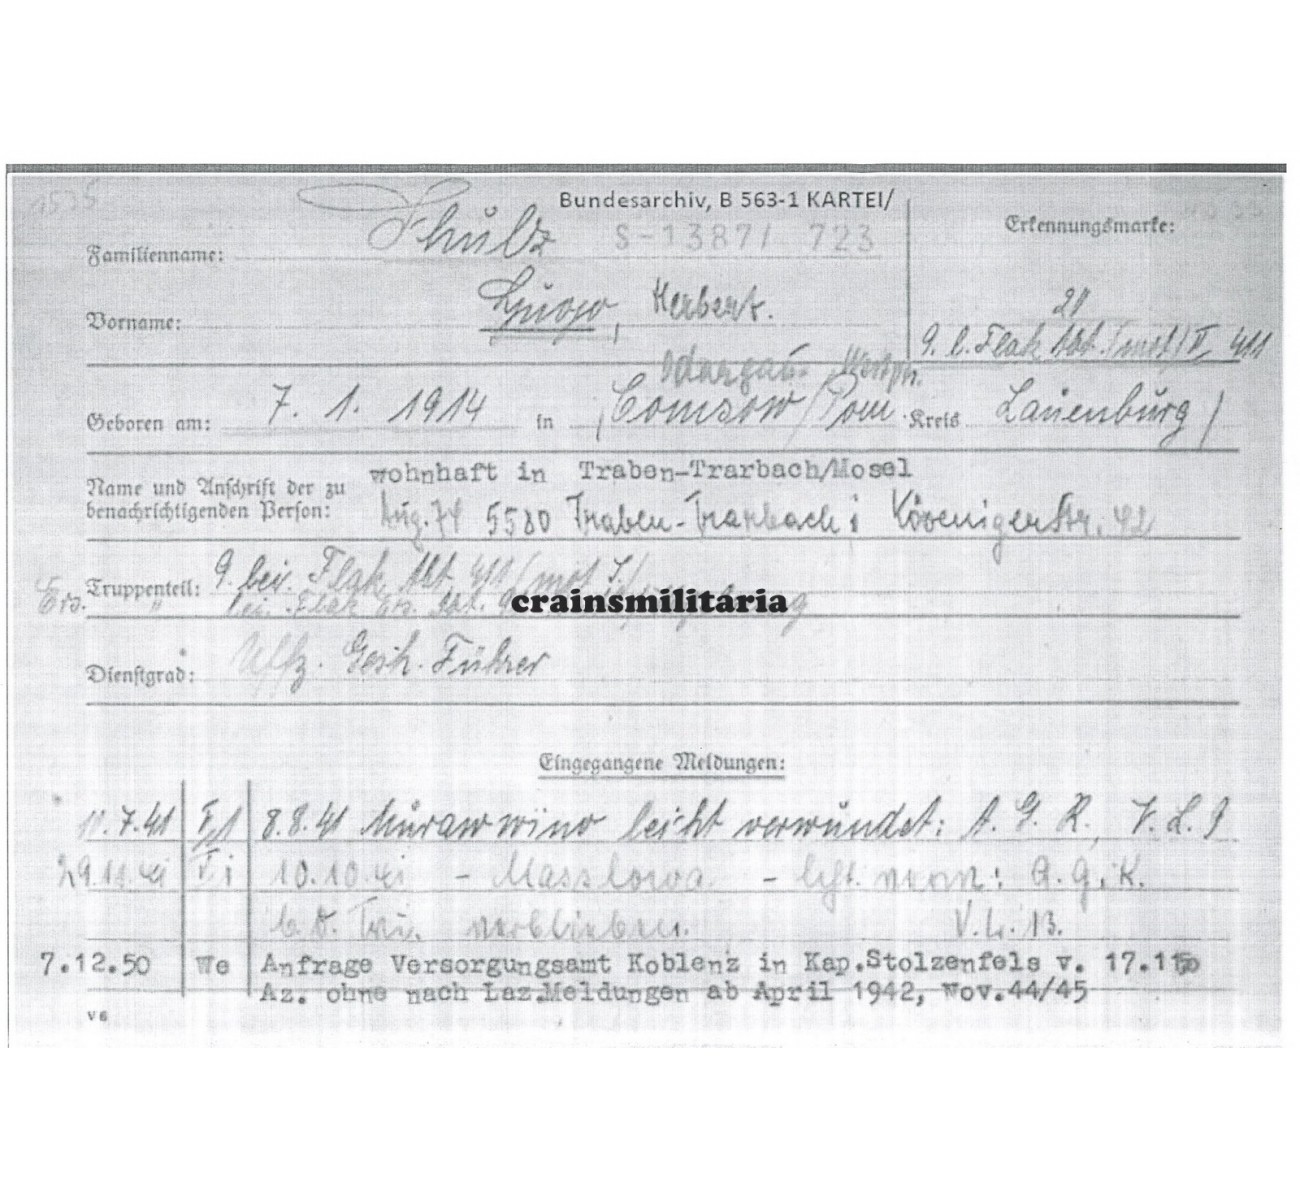 1535
Bundesarchiv, B 563-1 KARTEI/
S-13871 723
Erkennungsmarke:
Familienname: Schulz
Vorname: Hugo, Herbert.
21
9. l. Flak Abt. (mot) V. 411
Geboren am: 7. 1. 1914 in (Comsow/Pom. Kreis Lauenburg)
Name und Anschrift der zu benachrichtigenden Person:
wohnhaft in Traben-Trarbach/Mosel
Aug. 74 5580 Traben-Trarbach, Kövenigerstr. 42
Truppenteil: 9. bei. Flak Abt. 411 (mot
Ers. "
crainsmilitaria
Dienstgrad: Uffz. Gesch. Führer
Eingegangene Meldungen:
11.7.41 8.8.41 leicht verwundet: A. G. R.
10.10.41 - Masslowa - verw.: A.G.K.
b. d. Tru. verblieben. V.L. 13.
7.12.50 We Anfrage Versorgungsamt Koblenz in Kap.Stolzenfels v. 17.1150
Az. ohne nach Laz.Meldungen ab April 1942, Nov.44/45
V6